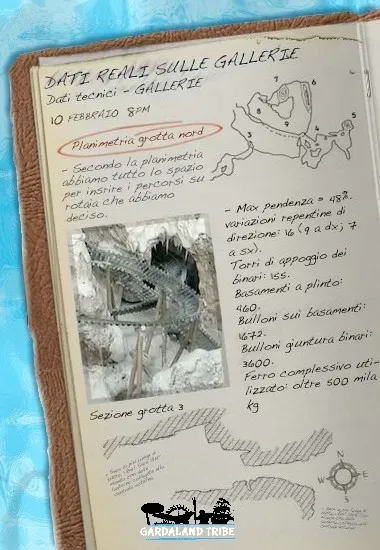 DATI REALI SULLE GALLERIE
Dati tecnici - GALLERIE
10 FEBBRAIO 8PM
Planimetria grotta nord
- Secondo la planimetria
abbiamo tutto lo spazio
per insrire i percorsi su
rotaia che abbiamo
deciso.
7
6
8
3
9
4
5
- Max pendenza = 48%.
variazioni repentine di
direzione: 16 (9 a dx; 7
a sx).
Torri di appoggio dei
binari: 155.
Basamenti a plinto:
460.
Bulloni sui basamenti:
1672.
Bulloni giuntura binari:
3600.
Ferro complessivo uti-
lizzato: oltre 500 mila
kg
Sezione grotta 3
N
W E
S
GARDALAND TRIBE